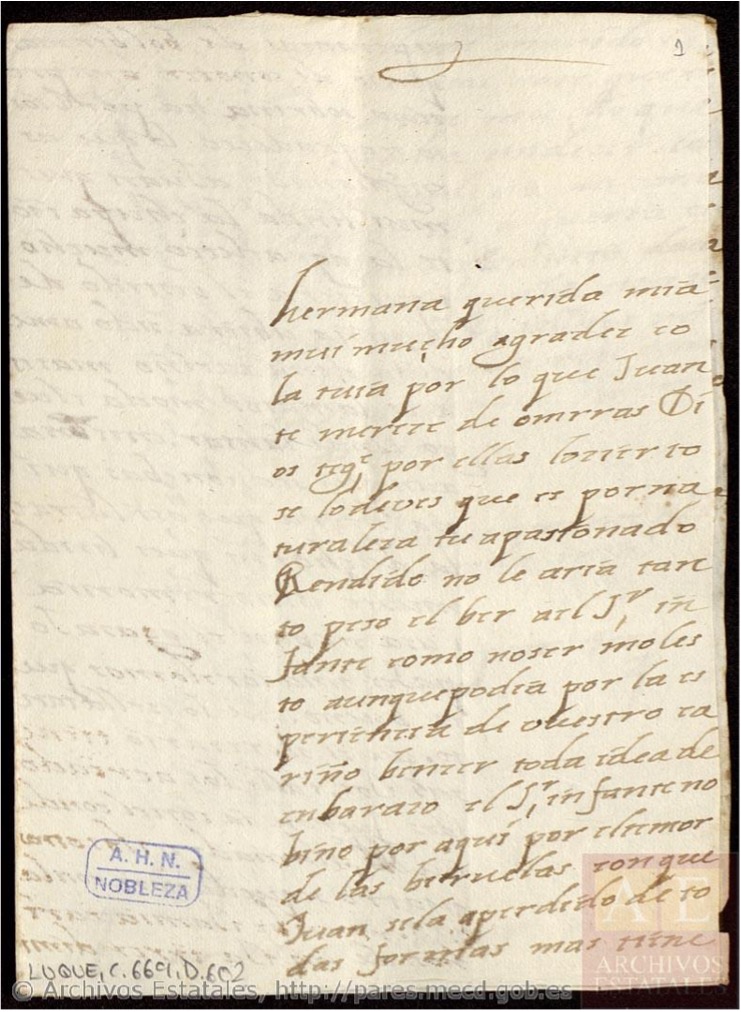 1
hermana querida mia
mui mucho agradez co
la tuia por lo que Juan
te merece de omrras Di
os teg.e por ellas lo cierto
se lo deves que es por na
turaleza tu apasionado
Rendido no le aria tan
to peso el ber ael S.r in
fante como no ser moles
to aunque podia por la es
periencia de vuestro ca
riño bencer toda idea de
enbarazo el S.r infante no
bino por aqui por el temor
de las birruelas con que
Juan se la a perdido de to
das formas mas tiene
A. H. N.
NOBLEZA
LUQUE, C. 669, D. 602
© Archivos Estatales, http://pares.mecd.gob.es
AE
ARCHIVOS
ESTATALES